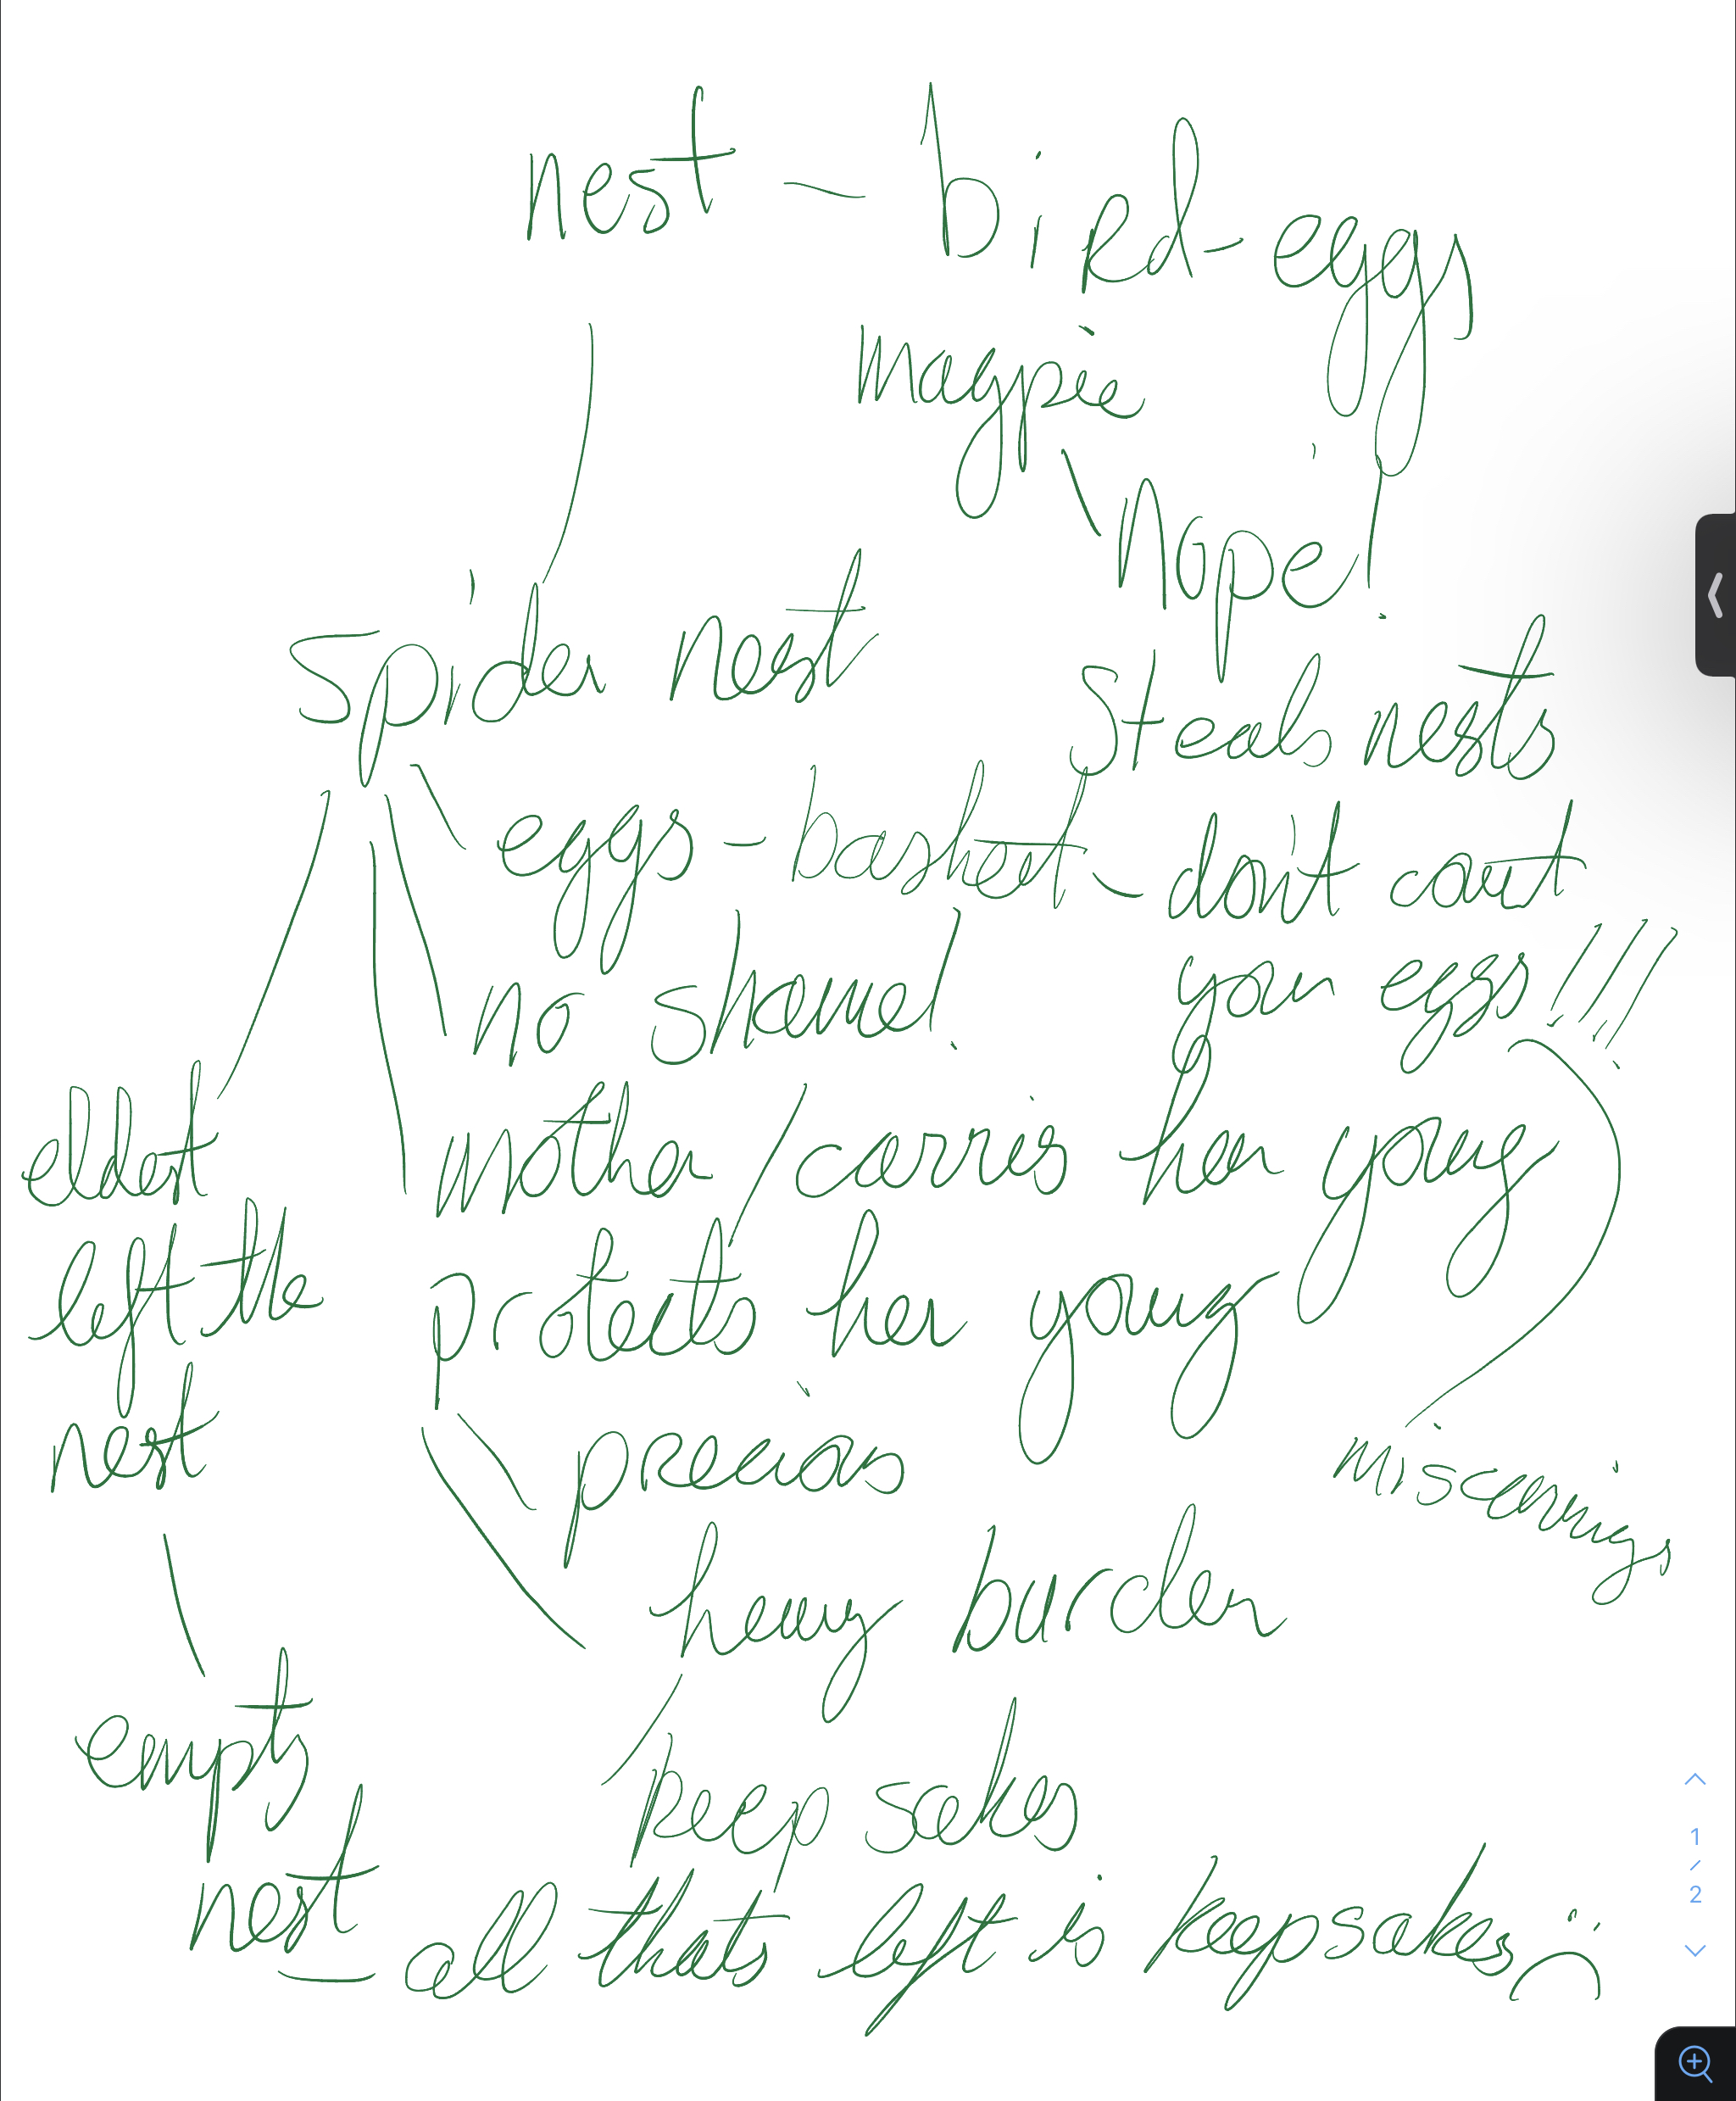 nest ~ bird - eggs
magpie
Nope!
Spider nest
Steals nests
eggs - basket - don't count
your eggs!!!
no shame!
eldest
left the
nest
mother / carries her young
protects her young
precious
heavy burden
empty
nest
keep sakes
all thats left is keepsakes :(
1
/
2